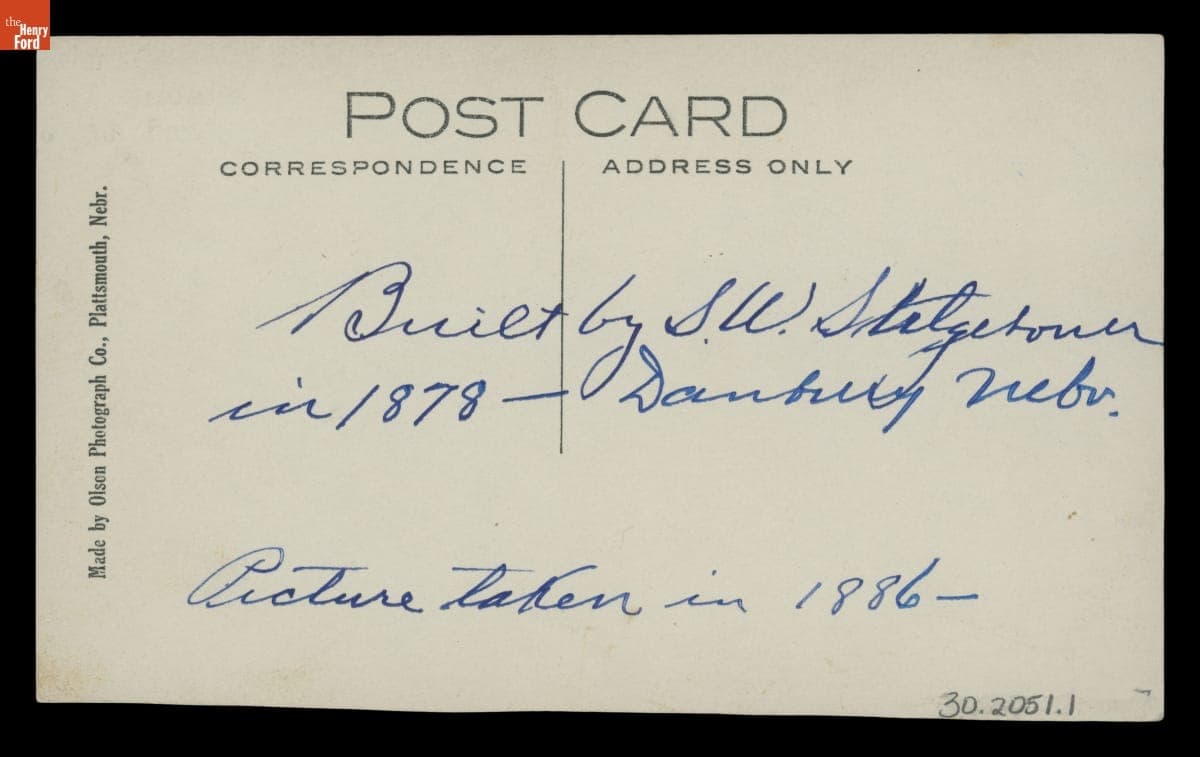 the
Henry
Ford
POST CARD
CORRESPONDENCE
ADDRESS ONLY
Made by Olson Photograph Co., Plattsmouth, Nebr.
Built by S.W.
in 1878 — Danbury Nebr.
Picture taken in 1886 —
30.2051.1